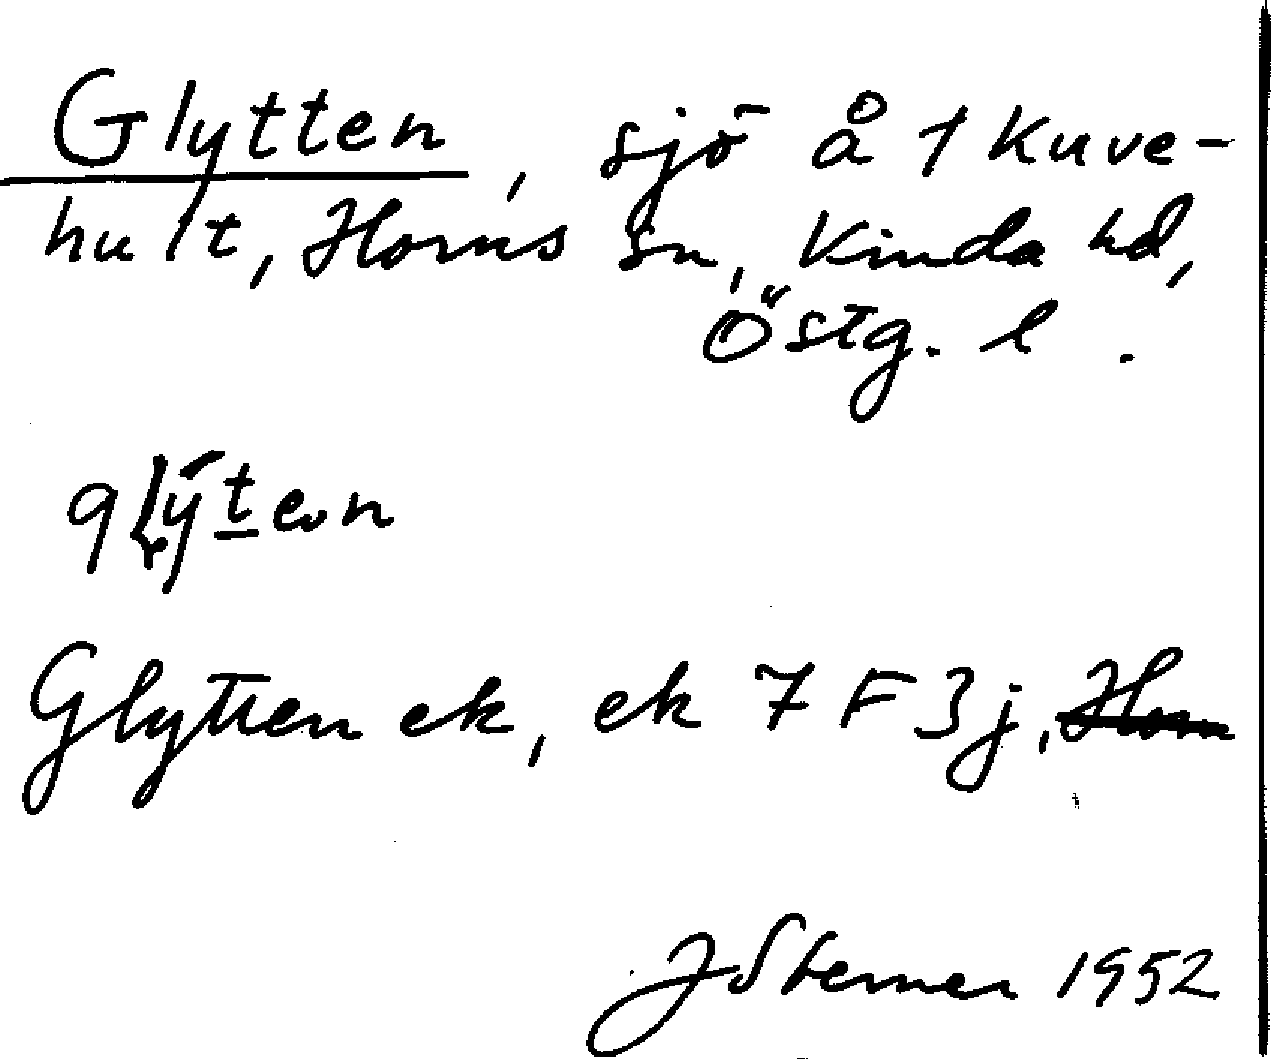 Glytten, sjö å 1 Kuve-
hult, Horns sn, Kinda hd,
Östg. l.
Glytten ek, ek 7 F 3j, Horn
J Sterner 1952